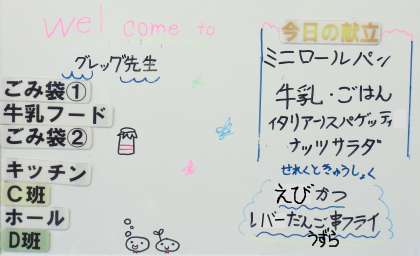 Welcome to
グレッグ先生
ごみ袋①
牛乳フード
ごみ袋②
キッチン
C班
ホール
D班
今日の献立
ミニロールパン
牛乳・ごはん
イタリアーノスパゲッティ
ナッツサラダ
せれくときゅうしょく
えびかつ
レバーだんご串フライ
うずら